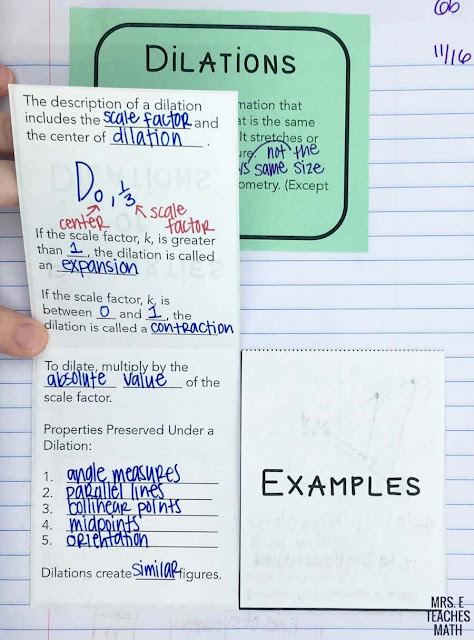 6b
11/16
DILATIONS
The description of a dilation
includes the scale factor and
the center of dilation.
mation that
at is the same
It stretches or
ure. not the
same size
ometry. (Except
D O, 1/3
center
scale
factor
If the scale factor, k, is greater
than 1, the dilation is called
an expansion
If the scale factor, k, is
between 0 and 1, the
dilation is called a contraction
To dilate, multiply by the
absolute value of the
scale factor.
Properties Preserved Under a
Dilation:
1. angle measures
2. parallel lines
3. collinear points
4. midpoints
5. orientation
Dilations create similar figures.
EXAMPLES
MRS. E
TEACHES
MATH